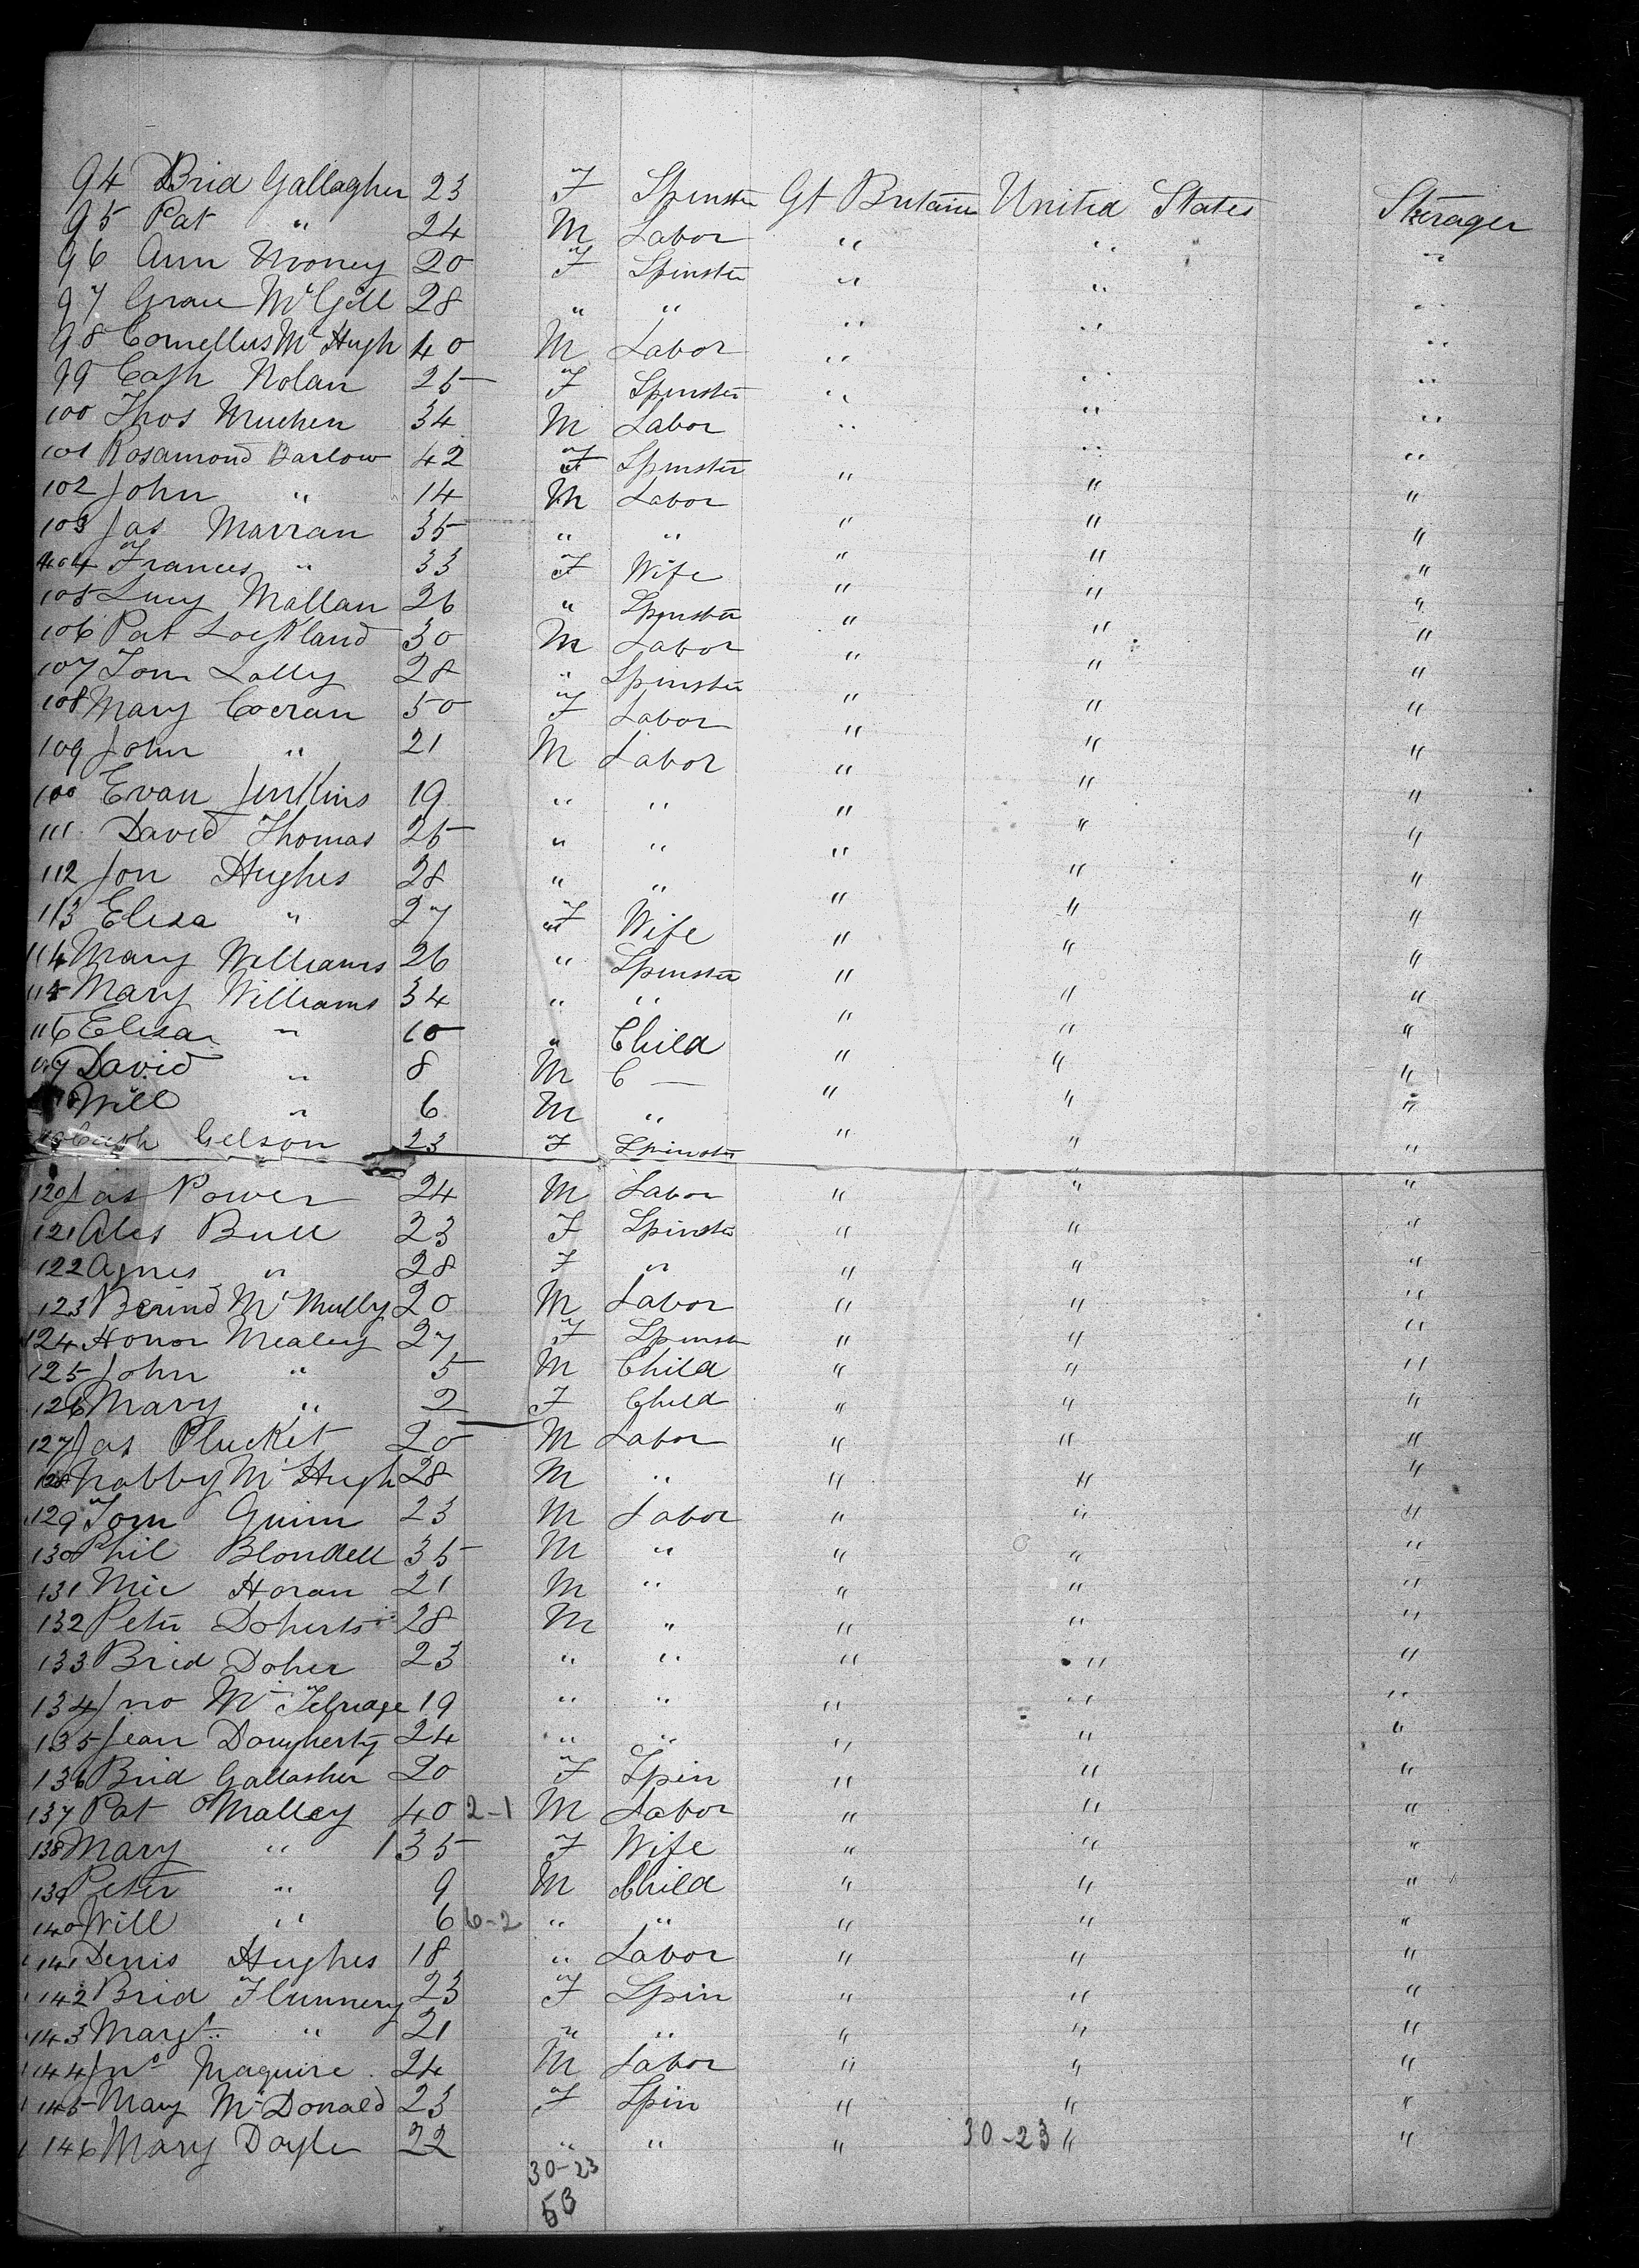 94 Brid Gallagher 23 F Spinster Gt Britain United States Steerager
95 Pat " 24 M Labor " " "
96 Ann Mooney 20 F Spinster " "
97 Grace McGill 28 " " " " "
98 Cornellus McHugh 40 M Labor " " "
99 Cath Nolan 25 F Spinster " " "
100 Thos Muchen 34 M Labor " " "
101 Rosamond Barlow 42 F Spinster " " "
102 John " 14 M Labor " " "
103 Jas Marran 35 " " " " "
104 Frances " 33 F Wife " " "
105 Lucy Mallan 26 " Spinster " " "
106 Pat Lockland 30 M Labor " " "
107 Tom Lally 28 " Spinster " " "
108 Mary Cocran 50 F Labor " " "
109 John " 21 M Labor " " "
100 Evan Jenkins 19 " " " " "
111 David Thomas 25 " " " " "
112 Jon Hughes 28 " " " " "
113 Eliza " 27 F Wife " " "
114 Mary Williams 26 " Spinster " " "
115 Mary Williams 34 " " " " "
116 Eliza " 10 " Child " " "
117 David " 8 M C — " " "
Will " 6 M " " " "
Cath Gelson 23 F Spinster " " "
120 Jas Power 24 M Labor " " "
121 Ales Bull 23 F Spinster " " "
122 Agnes " 28 F " " " "
123 McNully 20 M Labor " " "
124 Honor Mealey 27 F Spinster " " "
125 John " 5 M Child " " "
126 Mary " 2 F Child " " "
127 Jas Plucket 20 M Labor " " "
128 Nabby McHugh 28 M " " " "
129 Tom Guinn 23 M Labor " " "
130 Phil Blondell 35 M " " " "
131 Mic Horan 21 M " " " "
132 Peter Doherts 28 M " " " "
133 Brid Doher 23 " " " " "
134 Jno Mc 19 " " " " "
135 Jean Dougherty 24 " " " " "
136 Brid Gallasher 20 F Spin " " "
137 Pat OMalley 40 2-1 M Labor " " "
138 Mary " 35 F Wife " " "
139 Peter " 9 M Child " " "
140 Will " 6 6-2 " " " " "
141 Denis Hughes 18 " Labor " " "
142 Brid Flunnery 23 F Spin " " "
143 Margt " 21 " " " " "
144 Jno Maguire 24 M Labor " " "
145 Mary McDonald 23 F Spin " " "
146 Mary Doyle 22 " " " 30-23 " "
30-23
53